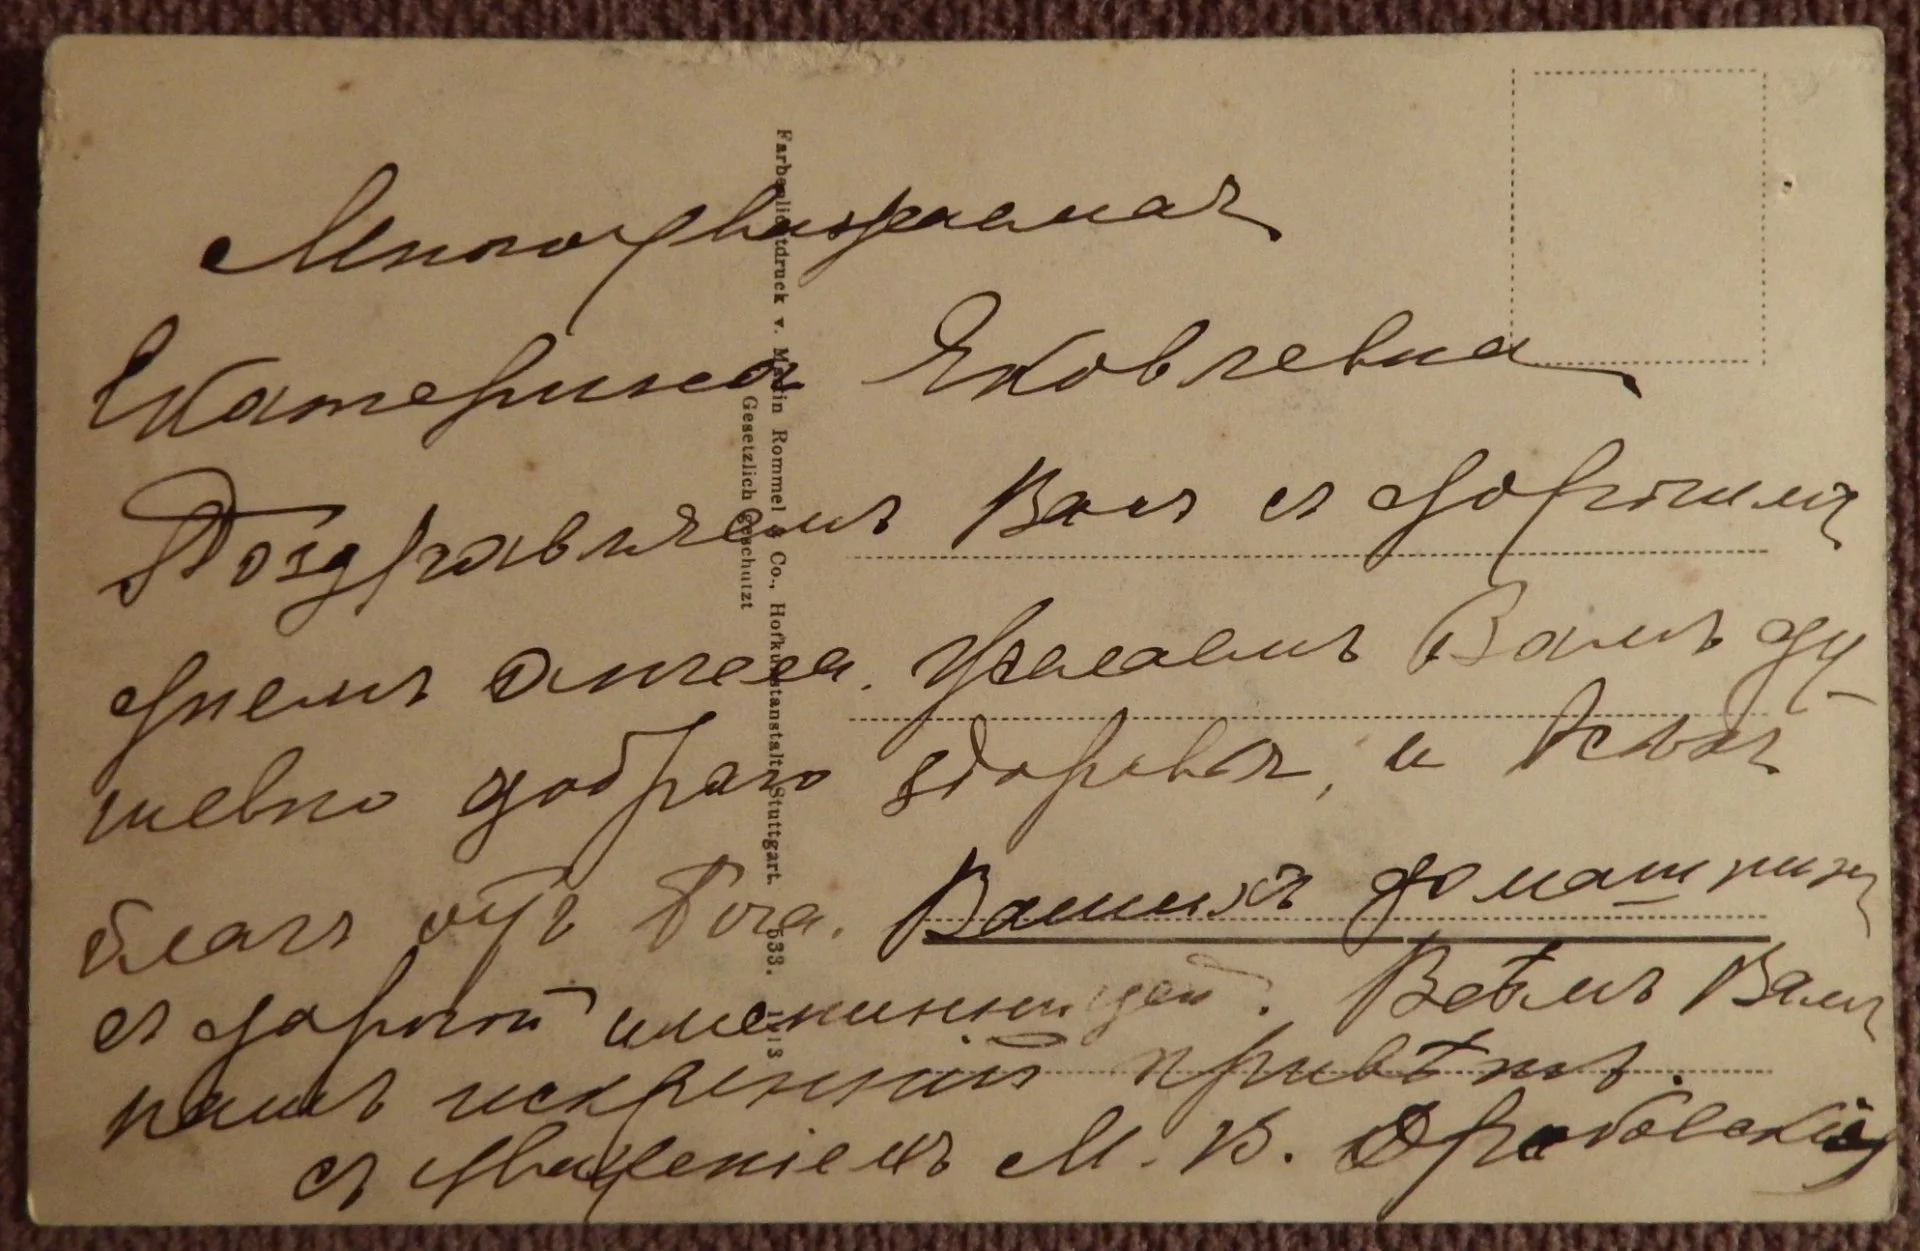 Многоуважаемая
Екатерина Яковлевна
Поздравляемъ Васъ съ дорогимъ
днемъ Ангела. Желаемъ Вамъ ду-
шевно добраго здоровья, и всѣхъ
благъ отъ Бога. Вашихъ домашнихъ
съ дорогой именинницей. Всѣмъ Вамъ
нашъ искренний привѣтъ.
съ уваженіемъ М. В.
Farbenlichtdruck v. Martin Rommel & Co., Hofkunstanstalt, Stuttgart. 533. 1913
Gesetzlich geschützt